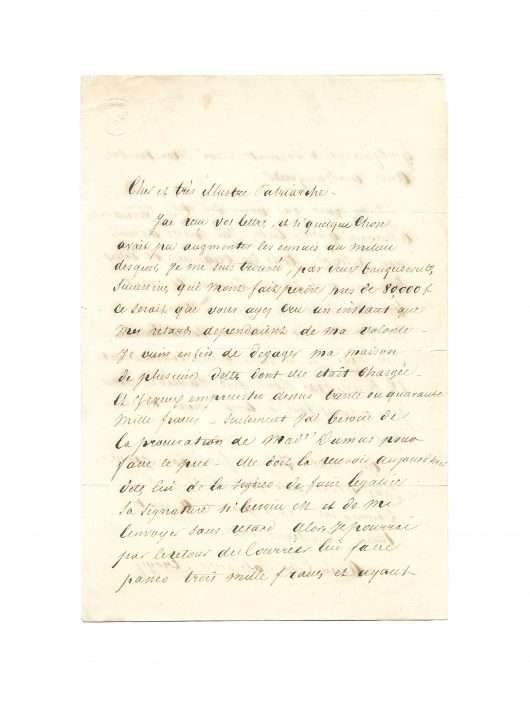 Cher et très illustre Patriarche -
J'ai reçu vos lettres, et si quelque chose
avait pu augmenter les ennuis au milieu
desquels je me suis trouvée, par deux banqueroutes
qui m'ont fait perdre près de 80,000 f
ce serait que vous ayez cru un instant que
mes retards dependaient de ma volonté -
Je viens enfin de degager ma maison
de plusieurs dettes dont elle etait chargée -
Et j'ai emprunter dessus trente ou quarante
mille francs - seulement j'ai besoin de
la procuration de Mad. Dumas pour
faire ce pret - elle doit la recevoir aujourd'hui
dites lui de la signer de faire legaliser
sa signature si besoin est et de me
l'envoyer sans retard alors je pourrai
par le retour du Courrier lui faire
passer trois mille francs et ayant